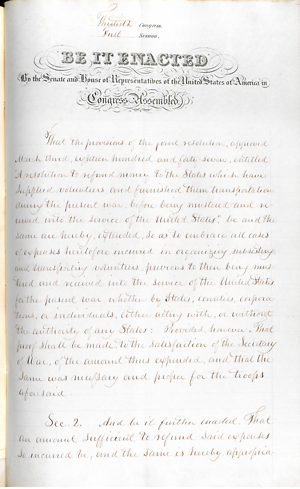 Thirtieth Congress
First Session.
BE IT ENACTED
By the Senate and House of Representatives of the United States of America in
Congress Assembled,
That the provisions of the joint resolution, approved
March third, eighteen hundred and forty seven, entitled
"A resolution to refund money to the States which have
supplied volunteers, and furnished them transportation
during the present war, before being mustered and re-
ceived into the service of the United States," be and the
same are hereby, extended, so as to embrace all cases
of expenses heretofore incurred in organizing, subsisting
and transporting volunteers, previous to their being mus-
tered and received into the service of the United States
for the present war whether by States, counties, corpora-
tions, or individuals, either acting with, or without
the authority of any State: Provided, however, That
proof shall be made to the satisfaction of the Secretary
of War, of the amount thus expended, and that the
same was necessary and proper for the troops
aforesaid.
Sec. 2. And be it further enacted, That
an amount sufficient to refund said expenses
so incurred be, and the same is hereby appropria